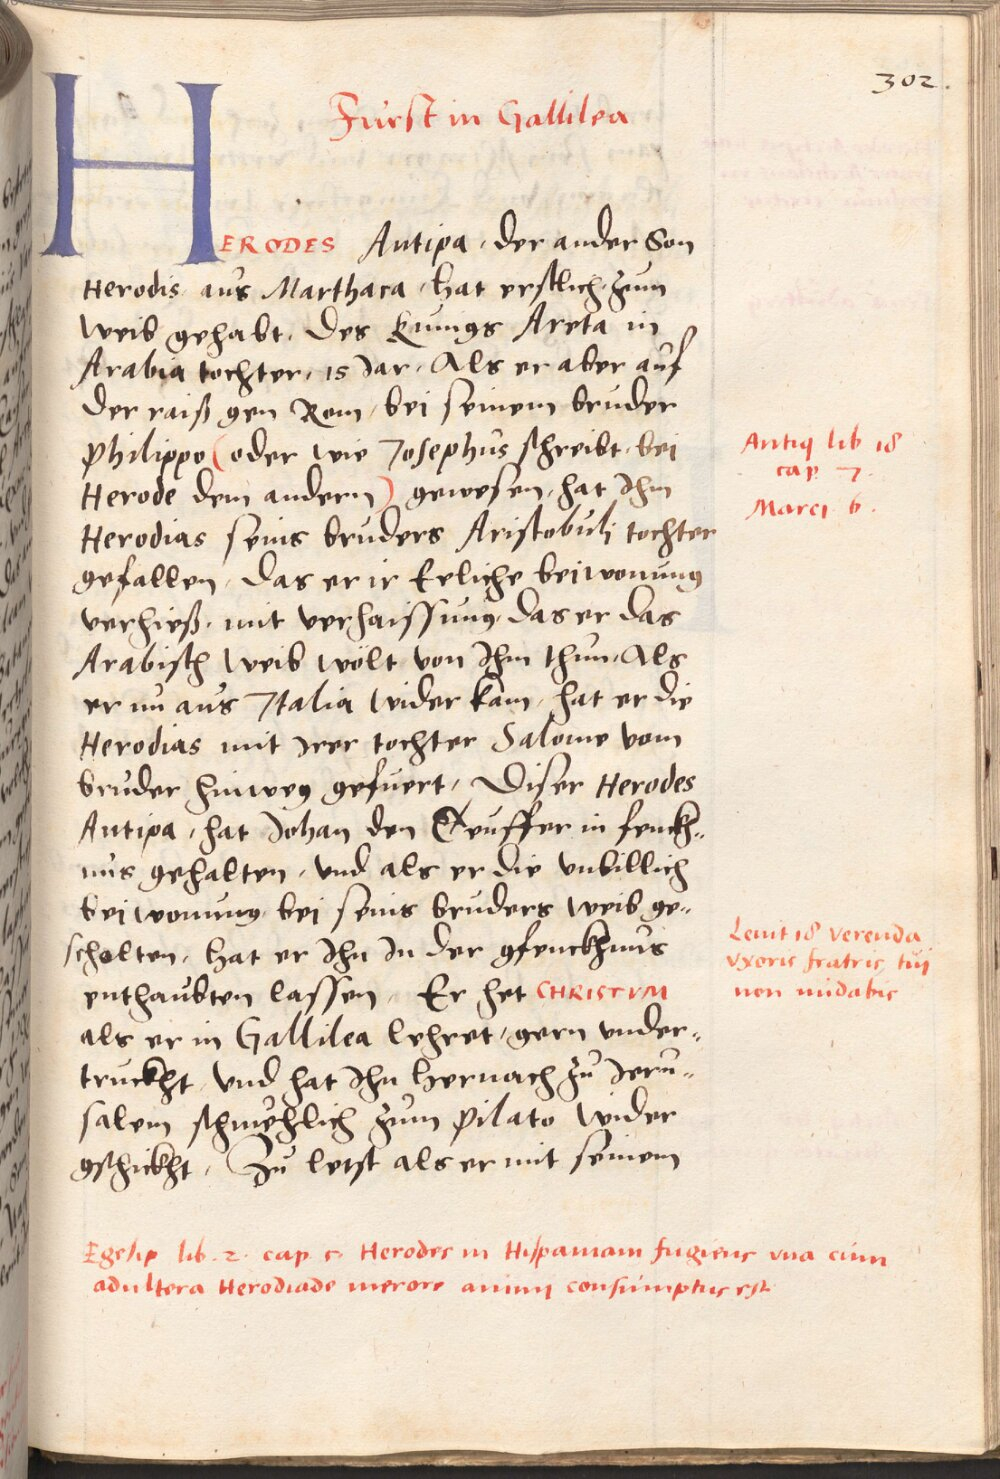 302.
Furst in Gallilea
HERODES Antipa, der ander Son
Herodis, aus Marthaca, hat erstlich, zum
Weib gehabt, des Kunigs Areta in
Arabia tochter, 15 Jar, Als er aber auf
der raiß gen Rom, bei seinem bruder
Philippo (oder wie Josephus schreibt, bei
Herode dem andern) gewesen, hat Ihm
Herodias seins bruders Aristobulj tochter
gefallen, das er ir Erliche beiwonung
verhieß, mit verhaissung, das er das
Arabisch Weib wolt von Ihm thun, Als
er nu aus Italia wider kam, hat er die
Herodias mit Irer tochter Salome vom
bruder hinweg gefuert, Diser Herodes
Antipa, hat Johan den Teuffer in fenckh-
nus gehalten, vnd als er die vnbillich
beiwonung, bei seins bruders Weib ge-
scholten, hat er Ihn In der gfenckhnus
enthaubten lassen, Er het CHRISTVM
als er in Gallilea lehret, gern vnder-
truckht, vnd hat Ihn hernach zu Jeru-
salem schmehlich zum Pilato wider
gschickht, Zu letst als er mit seinem
Antiq lib 18
cap 7.
Marci 6.
Leuit 18 verenda
vxoris fratris tui
non nudabis
Egesip lib. 2. cap 5 Herodes in Hispaniam fugiens vna cum
adultera Herodiade merore animj consumptus est